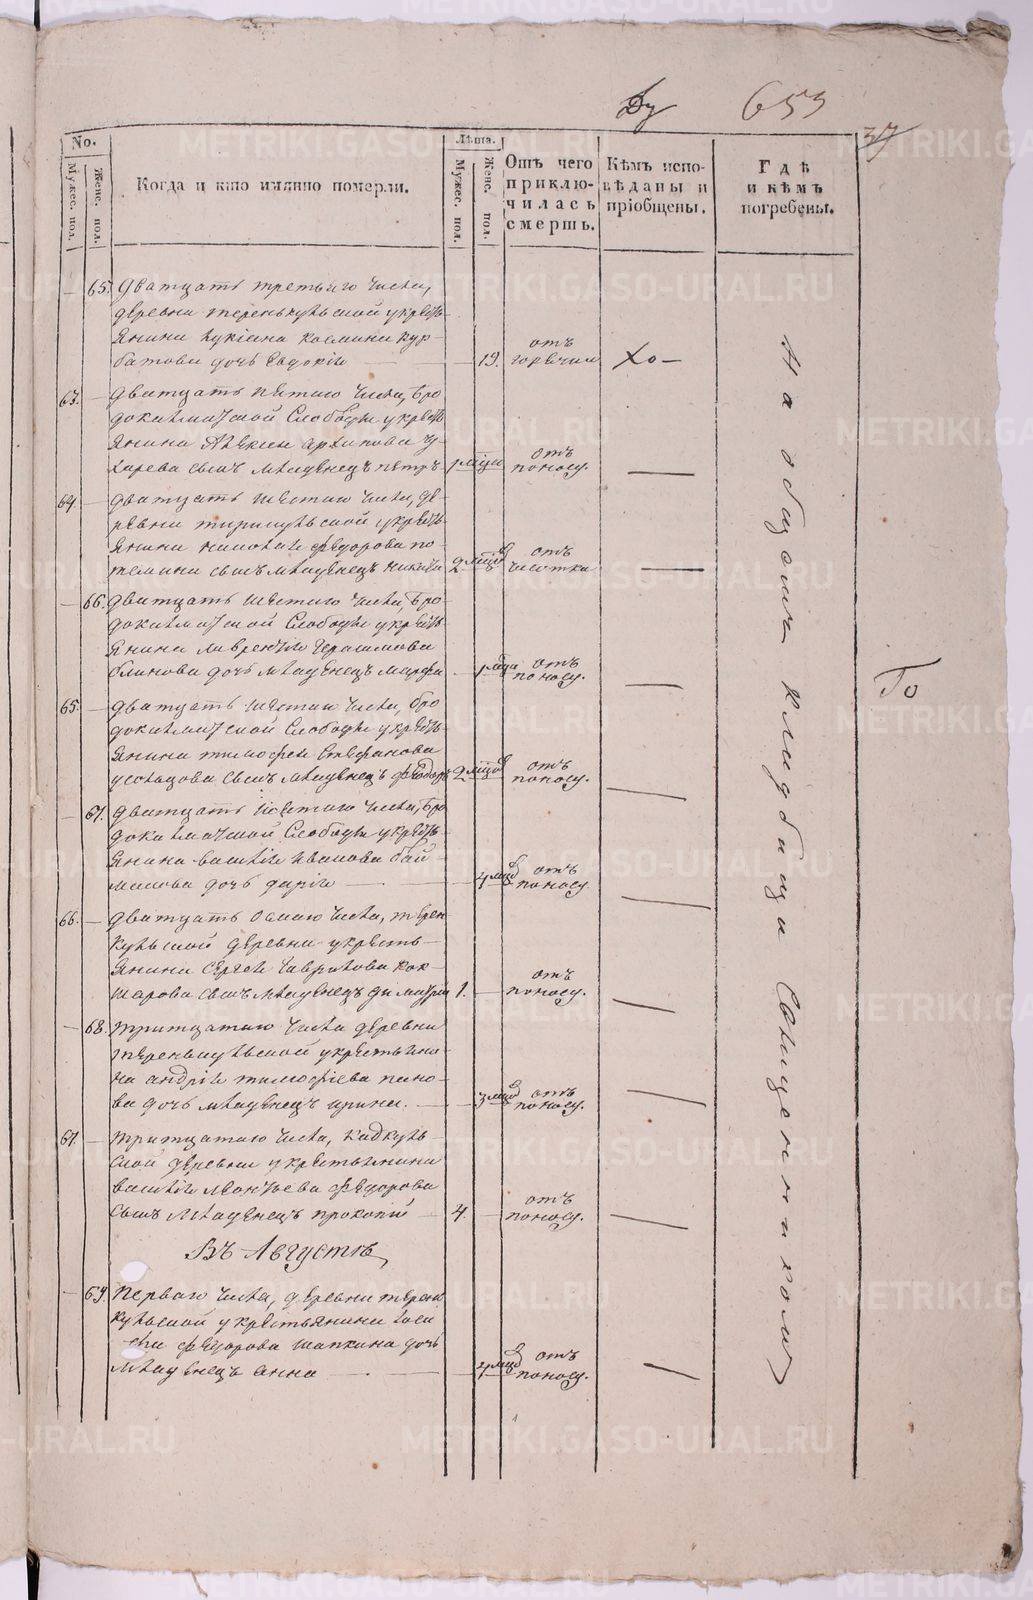 653
37
No.
Мужес. пол.
Женс. пол.
Когда и кто имянно померли.
Лѣта.
Мужес. пол.
Женс. пол.
Отъ чего
приклю-
чилась
смерть.
Кѣмъ испо-
вѣданы и
пріобщены.
Гдѣ
и кѣмъ
погребены.
65. Дватцать третьяго числа,
деревни теренькульской укресть-
янина лукіана козмина кур-
батова дочь Евдокія 19. отъ горячки
63. дватцать пятаго числа, бро
докалматской Слободы укресть
янина Алексея архипова
сынъ младенецъ петръ 1 мца отъ поносу.
64. дватцать шестаго числа, де-
ревни укресть
янина николая федорова по-
темкина сынъ младенецъ никита 2 мцовъ отъ
66. дватцать шестаго числа, бро-
докалматской Слободы укресть
янина лаврентія герасимова
блинова дочь младенецъ марфа 1 мца отъ поносу.
65. дватцать шестаго числа, бро
докалматской Слободы укресть
янина тимофея Стефанова
усолцова сынъ младенецъ феодоръ 2 мцовъ отъ поносу.
67. дватцать шестаго числа, бро
докалматской Слободы укресть
янина василія иванова
дочь дарія 4 мцовъ отъ поносу
66. дватцать осмаго числа, терен
кульской деревни укресть-
янина Сергея гаврилова кок-
шарова сынъ младенецъ димитрій 1. отъ поносу.
68. тритцатаго числа деревни
тереннкульской укрестьяни-
на андрія тимофіева пано-
ва дочь младенецъ ирина. 3 мцовъ отъ поносу.
67. тритцатаго числа, кадкуль-
ской деревни укрестьянина
василія леонтьева федорова
сынъ младенецъ прокопій 4. отъ поносу.
Въ Августѣ
69 перваго числа, деревни терен
кульской укрестьянина
федорова шапкина дочь
младенецъ анна 4 мцовъ отъ поносу.
На общемъ кладбищи Священникомъ
Го
METRIKI.GASO-URAL.RU